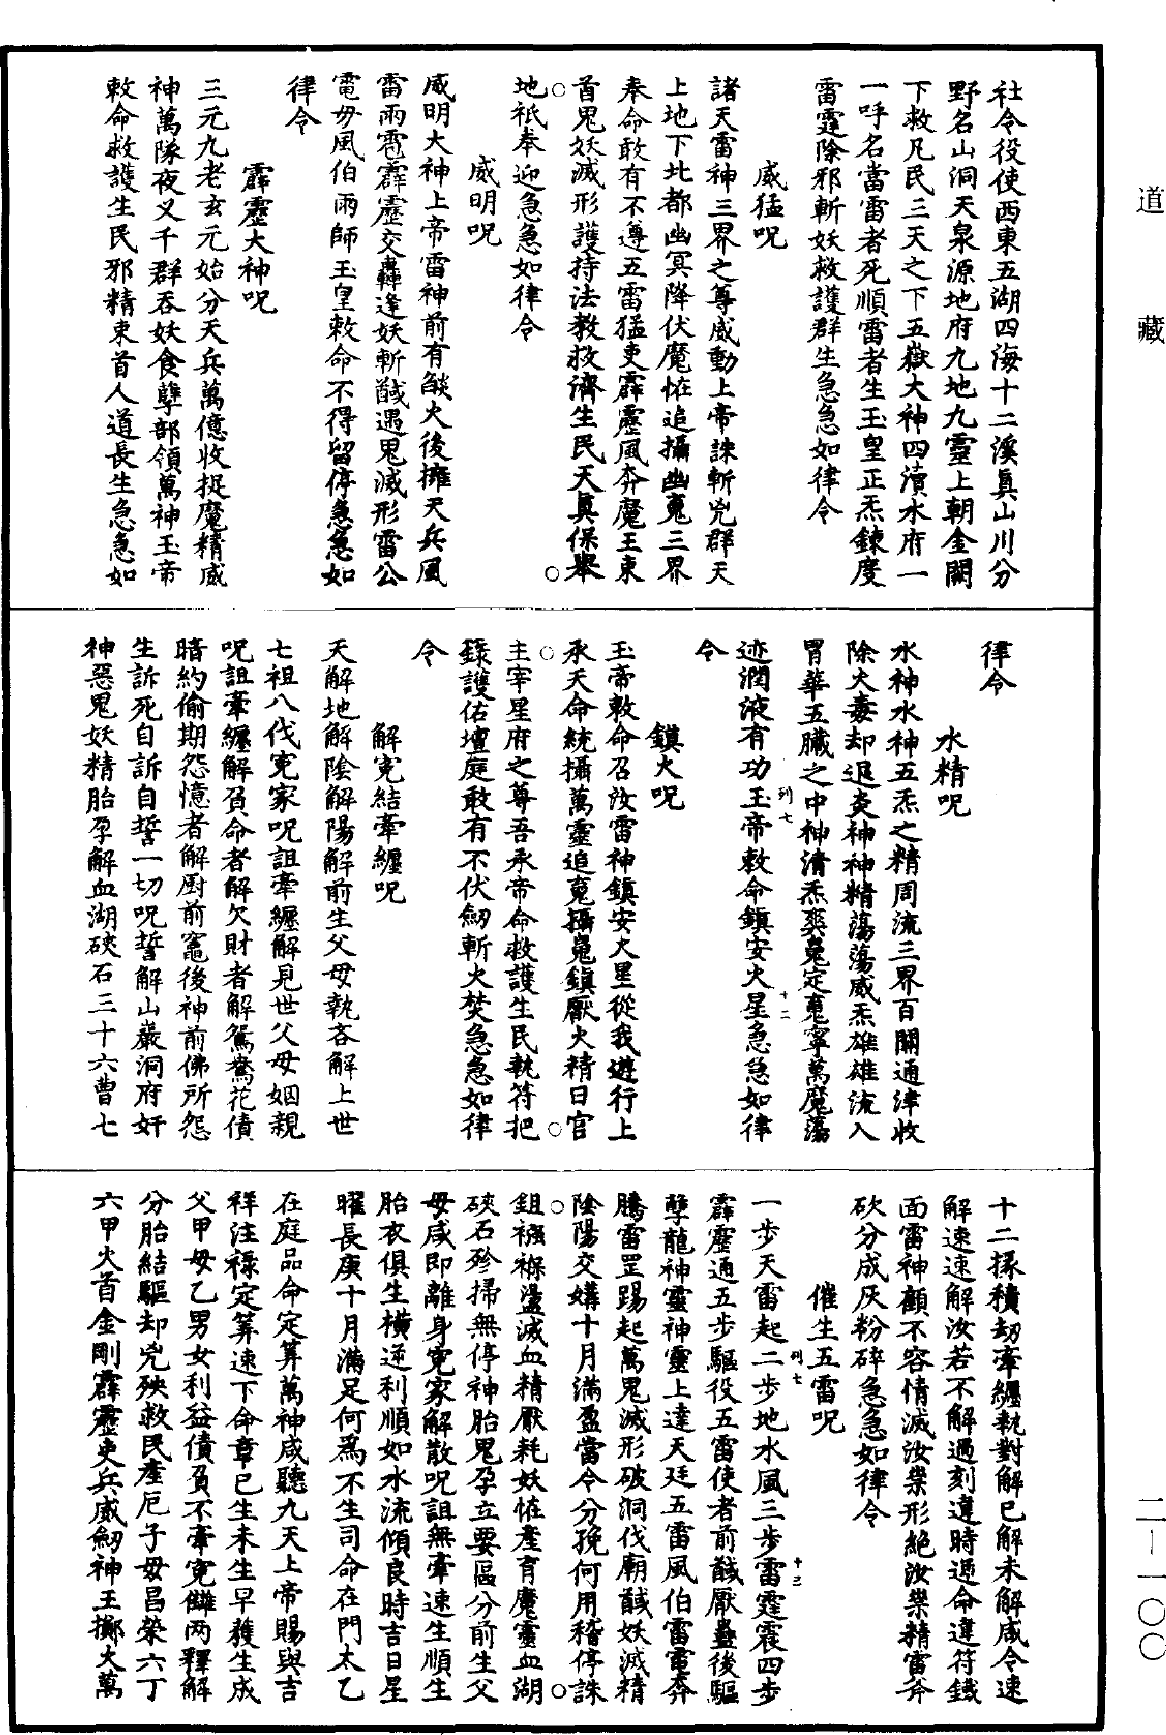 社令役使西東五湖四海十二溪真山川分
野名山洞天泉源地府九地九靈上朝金闕
下救凡民三天之下五嶽大神四瀆水府一
一呼名當雷者死順雷者生玉皇正炁鍊度
雷霆除邪斬妖救護群生急急如律令
威猛呪
諸天雷神三界之尊威動上帝誅斬兇群天
上地下北都幽冥降伏魔恠追攝幽䰟三界
奉命敢有不遵五雷猛吏霹靂風奔魔王束
首鬼妖滅形護持法教救濟生民天真保舉
地祇奉迎急急如律令
威明呪
威明大神上帝雷神前有燄火後擁天兵風
雷雨雹霹靂交轟逢妖斬馘遇鬼滅形雷公
電母風伯雨師玉皇敕命不得留停急急如
律令
霹靂大神呪
三元九老玄元始分天兵萬億收捉魔精威
神萬隊夜叉千群吞妖食孽部領萬神玉帝
敕命救護生民邪精束首人道長生急急如
律令
水精呪
水神水神五炁之精周流三界百關通津收
除火毒却退炎神神精蕩蕩威炁雄雄流入
胃華五臟之中神清炁爽䰟定䰟寧萬魔蕩
迹潤液有功玉帝敕命鎮安火星急急如律
令
列七
十二
鎮火呪
玉帝敕命召汝雷神鎮安火星從我遊行上
承天命統攝萬靈追䰟攝䰟鎮厭火精日官
主宰星府之尊吾承帝命救護生民執符把
籙護佑壇庭敢有不伏劒斬火焚急急如律
令
解寃結牽纏呪
天解地解陰解陽解前生父母執吝解上世
七祖八代寃家呪詛牽纏解見世父母姻親
呪詛牽纏解負命者解欠財者解鴛鴦花債
暗約偷期怨憶者解厨前竈後神前佛所怨
生訴死自訴自誓一切呪誓解山巖洞府奸
神惡鬼妖精胎孕解血湖硤石三十六曹七
十二掾積劫牽纏執對解已解未解咸令速
解速速解汝若不解過刻違時遞命違符鐵
面雷神顧不容情滅汝業形絕汝業精雷斧
砍分成灰粉碎急急如律令
催生五雷呪
一步天雷起二步地水風三步雷霆震四步
霹靂通五步驅役五雷使者前馘厭蠱後驅
孽龍神靈神靈上達天廷五雷風伯雷電奔
騰雷罡踢起萬鬼滅形破洞伐廟馘妖滅精
陰陽交媾十月滿盈當令分㝃何用稽停誅
鉏襁褓盪滅血精厭耗妖恠產育魔靈血湖
硤石殄掃無停神胎鬼孕立要區分前生父
母咸即離身寃家解散呪詛無牽速生順生
胎衣俱生橫逆利順如水流傾良時吉日星
曜長庚十月滿足何為不生司命在門太乙
在庭品命定筭萬神咸聽九天上帝賜與吉
祥注祿定筭速下命章已生未生早獲生成
父甲母乙男女利益債負不牽寃讎两釋解
分胎結驅却兇殃救民產厄子母昌榮六丁
六甲火首金剛霹靂吏兵威劒神王擲火萬
列七
十三
道藏
二—一〇〇